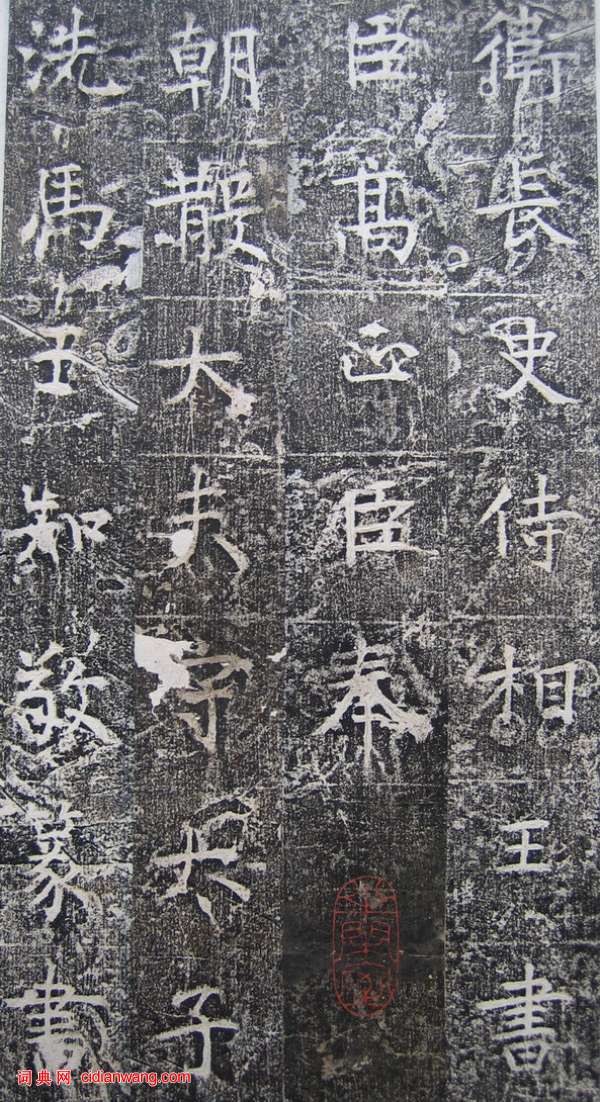 衛長史侍相王書
臣髙正臣奉
朝散大夫守太子
洗馬王知敬篆書
词典网 cidianwang.com